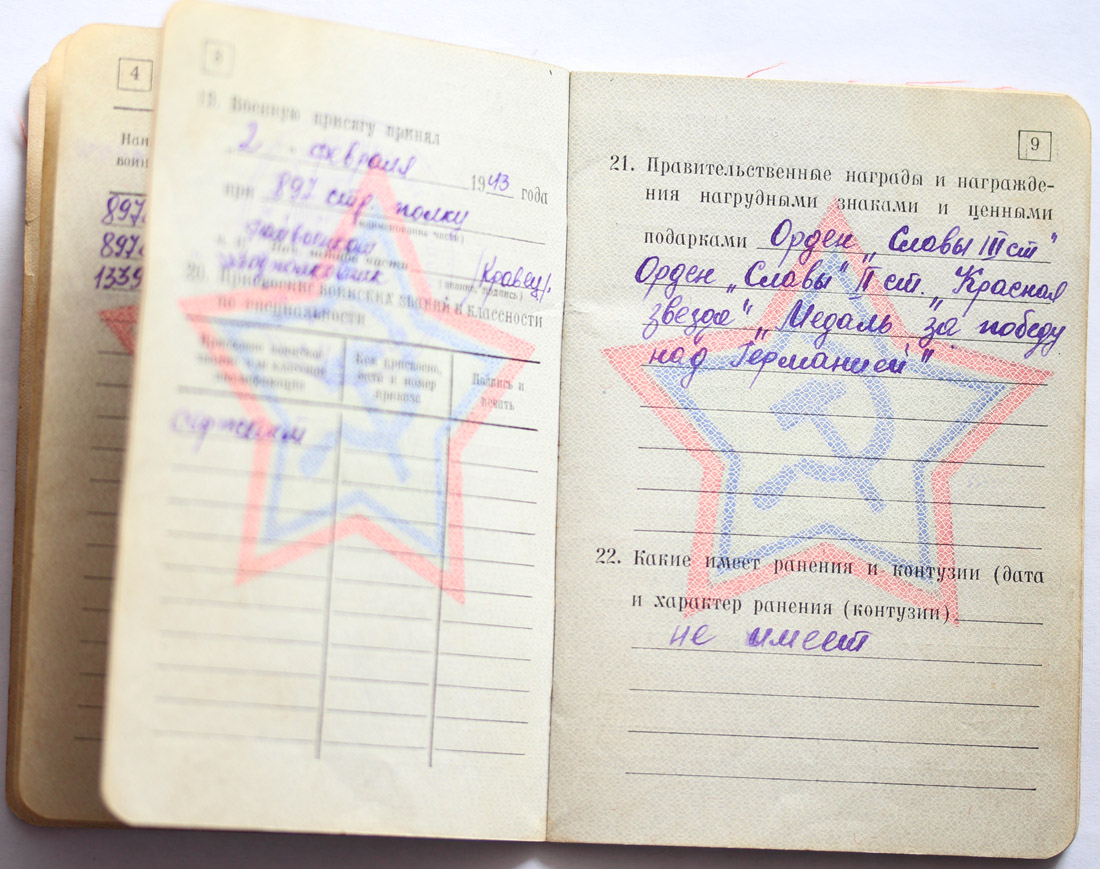 4
Нап
воин
897
897
1339
8
19. Военную присягу принял
2 февраля 1943 года
при 897 стр. полку
(наименование части)
/Кравец/.
20. Присвоение воинских званий и классности
по специальности
Кем присвоено,
дата и номер
приказа
Подпись и
печать
Сержант
9
21. Правительственные награды и награжде-
ния нагрудными знаками и ценными
подарками Орден „Славы III ст"
Орден „Славы" II ст. „Красная
звезда" „Медаль „за победу
над Германией"
22. Какие имеет ранения и контузии (дата
и характер ранения (контузии)
не имеет